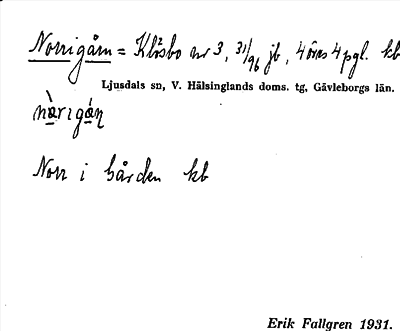 Norrigårn = Klösbo nr 3, 31/96 jb, 4 öres 4 pgl. kb
Ljusdals sn, V. Hälsinglands doms. tg, Gävleborgs län.
Norr i Gården kb
Erik Fallgren 1931.